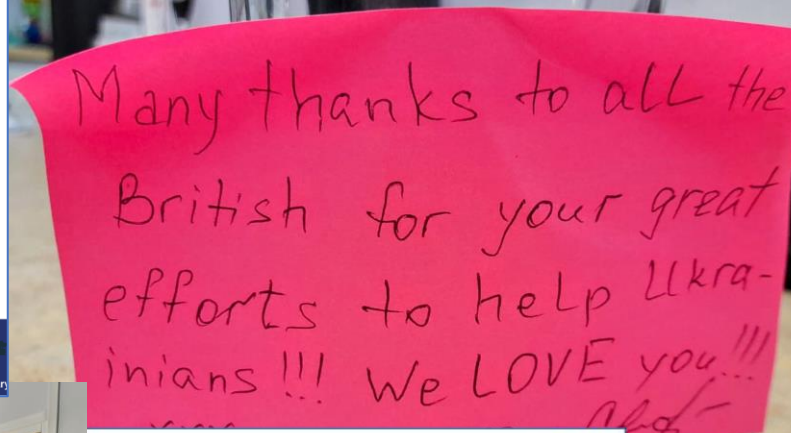 Many thanks to all the
British for your great
efforts to help Ukra-
inians!!! We LOVE you!!!